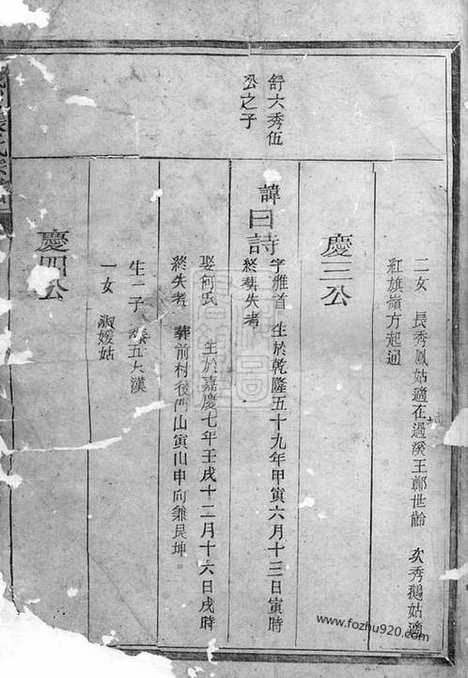 二女 長秀鳳姑適在過溪王鄭世齡 次秀鵝姑適
紅旗嶺方起通
慶三公
舒六秀伍
公之子
諱曰詩
字雅首 生於乾隆五十九年甲寅六月十三日寅時
終塟失考
娶柯氏 生於嘉慶七年壬戌十二月十六日戌時
終失考 葬前村後門山寅山申向兼艮坤
生一子 五大漢
一女 淑媛姑
慶四公
www.fozhu920.com